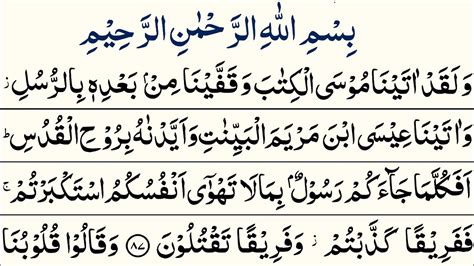 بِسْمِ اللهِ الرَّحْمٰنِ الرَّحِيْمِ
وَلَقَدْ اٰتَيْنَا مُوْسَى الْكِتٰبَ وَقَفَّيْنَا مِنْۢ بَعْدِهٖ بِالرُّسُلِ ز
وَاٰتَيْنَا عِيْسَى ابْنَ مَرْيَمَ الْبَيِّنٰتِ وَاَيَّدْنٰهُ بِرُوْحِ الْقُدُسِ ؕ
اَفَكُلَّمَا جَآءَكُمْ رَسُوْلٌۢ بِمَا لَا تَهْوٰٓى اَنْفُسُكُمُ اسْتَكْبَرْتُمْ ۚ
فَفَرِيْقًا كَذَّبْتُمْ ز وَفَرِيْقًا تَقْتُلُوْنَ ۝۸۷ وَقَالُوْا قُلُوْبُنَا